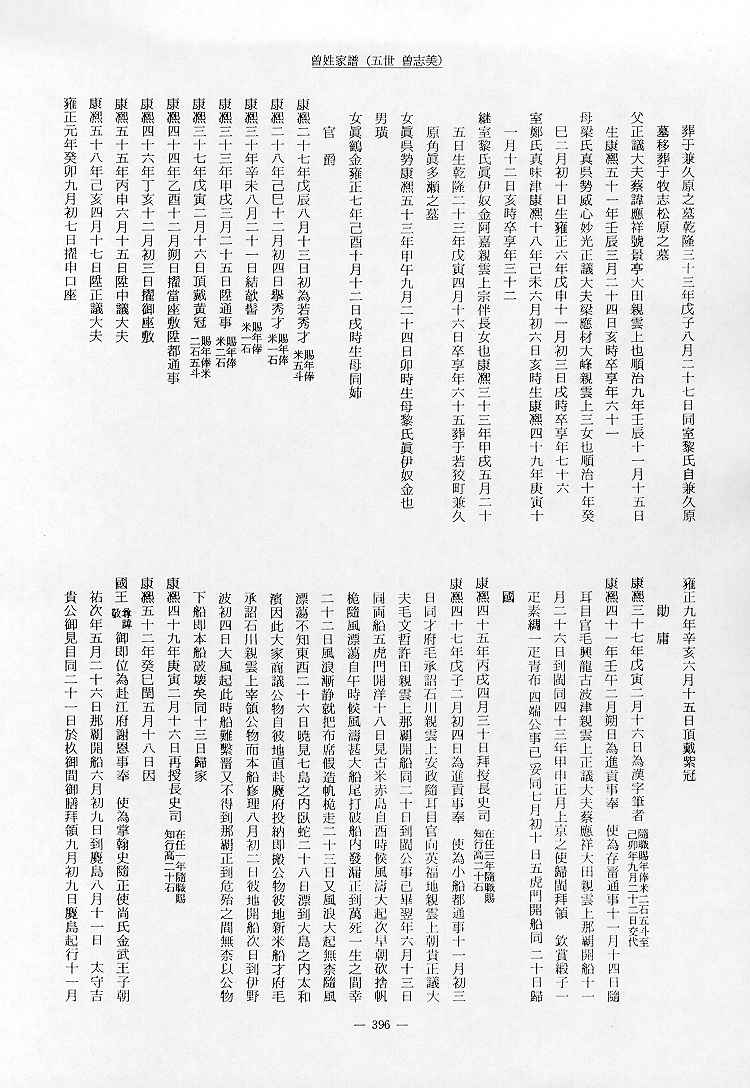 曾姓家譜（五世 曾志美）
葬于兼久原之墓乾隆三十三年戊子八月二十七日同室黎氏自兼久原
墓移葬于牧志松原之墓
父正議大夫蔡諱應祥號景亭大田親雲上也順治九年壬辰十一月十五日
生康凞五十一年壬辰三月二十四日亥時卒享年六十一
母梁氏真呉勢威心妙光正議大夫梁應材大峰親雲上三女也順治十年癸
巳二月初十日生雍正六年戊申十一月初三日戌時卒享年七十六
室鄭氏真味津康凞十八年己未六月初六日亥時生康凞四十九年庚寅十
一月十二日亥時卒享年三十二
継室黎氏眞伊奴金阿嘉親雲上宗伴長女也康凞三十三年甲戌五月二十
五日生乾隆二十三年戊寅四月十六日卒享年六十五葬于若狹町兼久
原角眞多瀬之墓
女眞呉勢康凞五十三年甲午九月二十四日卯時生母黎氏眞伊奴金也
男璜
女眞鶴金雍正七年己酉十月十二日戌時生母同姉
官爵
康凞二十七年戊辰八月十三日初為若秀才 賜年俸米五斗
康凞二十八年己巳十二月初四日擧秀才 賜年俸米一石
康凞三十年辛未八月二十一日結欹髻 賜年俸米一石
康凞三十三年甲戌三月二十五日陞通事 賜年俸米二石
康凞三十七年戊寅二月十六日頂戴黃冠 賜年俸米二石五斗
康凞四十四年乙酉十二月朔日擢當座敷陞都通事
康凞四十六年丁亥十二月初三日擢御座敷
康凞五十五年丙申六月十五日陞中議大夫
康凞五十八年己亥四月十七日陞正議大夫
雍正元年癸卯九月初七日擢申口座
雍正九年辛亥六月十五日頂戴紫冠
勛庸
康凞三十七年戊寅二月十六日為漢字筆者 隨職賜年俸米二石五斗至己卯年九月二十二日交代
康凞四十一年壬午二月朔日為進貢事奉　使為存畱通事十一月十四日隨
耳目官毛興龍古波津親雲上正議大夫蔡應祥大田親雲上那覇開船十一
月二十六日到閩同四十三年甲申正月上京之使歸閩拜領　欽賞緞子一
疋素綢一疋青布四端公事已妥同七月初十日五虎門開船同二十日歸
國
康凞四十五年丙戌四月三十日拜授長史司 在任三年隨職賜知行高二十石
康凞四十七年戊子二月初四日為進貢事奉　使為小船都通事十一月初三
日同才府毛承詔石川親雲上安政隨耳目官向英福地親雲上朝貴正議大
夫毛文哲許田親雲上那覇開船同二十日到閩公事已畢翌年六月十三日
同両船五虎門開洋十八日見古米赤島自酉時候風濤大起次早砍捨帆
桅隨風漂蕩自午時候風濤甚大船尾打破船内發漏正到萬死一生之間幸
二十二日風浪漸静就把布席假造帆桅走二十三日又風浪大起無柰隨風
漂蕩不知東西二十六日曉見七島之内臥蛇二十八日漂到大島之内太和
濱因此大家商議公物自彼地直赴麑府投納即搬公物彼地新米船才府毛
承詔石川親雲上宰領公物而本船修理八月初二日彼地開船次日到伊野
波初四日大風起此時船難繫畱又不得到那覇正到危殆之間無柰以公物
下船即本船破壊矣同十三日歸家
康凞四十九年庚寅二月十六日再授長史司 在任一年隨職賜知行高二十石
康凞五十二年癸巳閏五月十八日因
國王 尊諱敬 御即位為赴江府謝恩事奉　使為掌翰史隨正使尚氏金武王子朝
祐次年五月二十六日那覇開船六月初九日到麑島八月十一日　太守吉
貴公御見目同二十一日於杦御間御膳拜領九月初九日麑島起行十一月
— 396 —